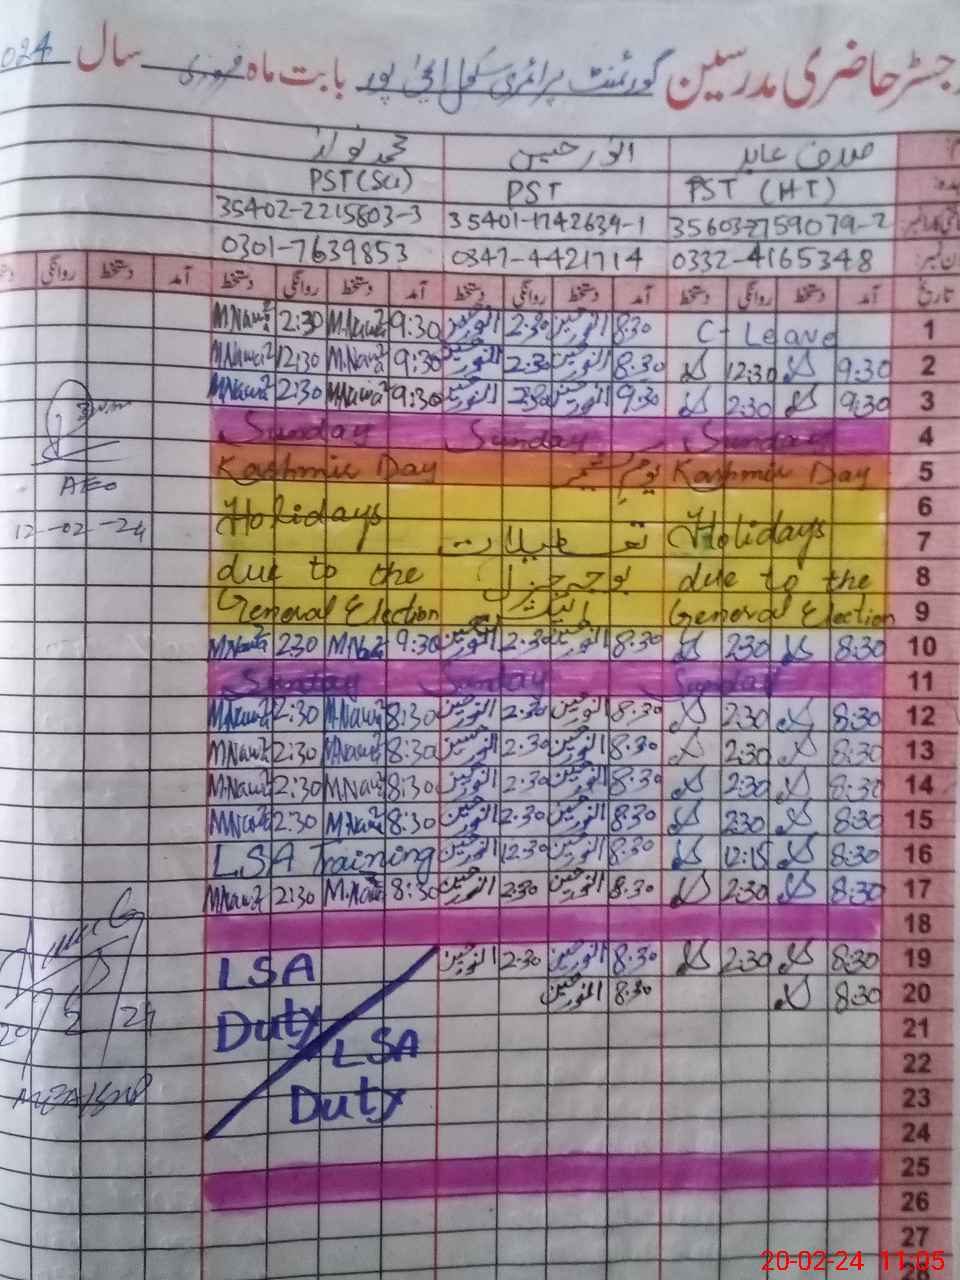 رجسٹر حاضری مدرسین گورنمنٹ پرائمری سکول پور بابت ماہ فروری سال 024
صدف عابد انور حسین محمد نواز
PST (HT) PST PST (Sci)
35603-2759079-2 35401-1742639-1 35402-2215803-3
0332-4165348 0347-4421714 0301-7639853
تاریخ آمد دستخط روانگی دستخط آمد دستخط روانگی دستخط آمد دستخط روانگی دستخط آمد دستخط روانگی دستخط
1 C-Leave 8:30 انور حسین 2:30 انور حسین 9:30 M.Nawaz 2:30 M.Nawaz
2 9:30 12:30 8:30 انور حسین 2:30 انور حسین 9:30 M.Nawaz 12:30 M.Nawaz
3 9:30 2:30 9:30 انور حسین 2:30 انور حسین 9:30 M.Nawaz 2:30 M.Nawaz
4 Sunday Sunday Sunday
5 Kashmir Day یوم کشمیر Kashmir Day
6 Holidays Holidays
7 تعطیلات
8 due to the بوجہ جنرل due to the
9 General Election الیکشن General Election
10 8:30 2:30 8:30 انور حسین 2:30 انور حسین 9:30 M.Nawaz 230 M.Nawaz
11 Sunday Sunday Sunday
12 8:30 2:30 8:30 انور حسین 2:30 انور حسین 8:30 M.Nawaz 2:30 M.Nawaz
13 8:30 2:30 8:30 انور حسین 2:30 انور حسین 8:30 M.Nawaz 2:30 M.Nawaz
14 8:30 2:30 8:30 انور حسین 2:30 انور حسین 8:30 M.Nawaz 2:30 M.Nawaz
15 8:30 2:30 8:30 انور حسین 2:30 انور حسین 8:30 M.Nawaz 2:30 M.Nawaz
16 8:30 12:15 8:30 انور حسین 12:30 انور حسین LSA Training
17 8:30 2:30 8:30 انور حسین 2:30 انور حسین 8:30 M.Nawaz 2:30 M.Nawaz
18
19 8:30 2:30 8:30 انور حسین 2:30 انور حسین LSA
20 8:30 8:30 انور حسین
21 Duty
22 LSA
23 Duty
24
25
26
27
28
AEO
12-02-24
20/2/24
20-02-24 11:05